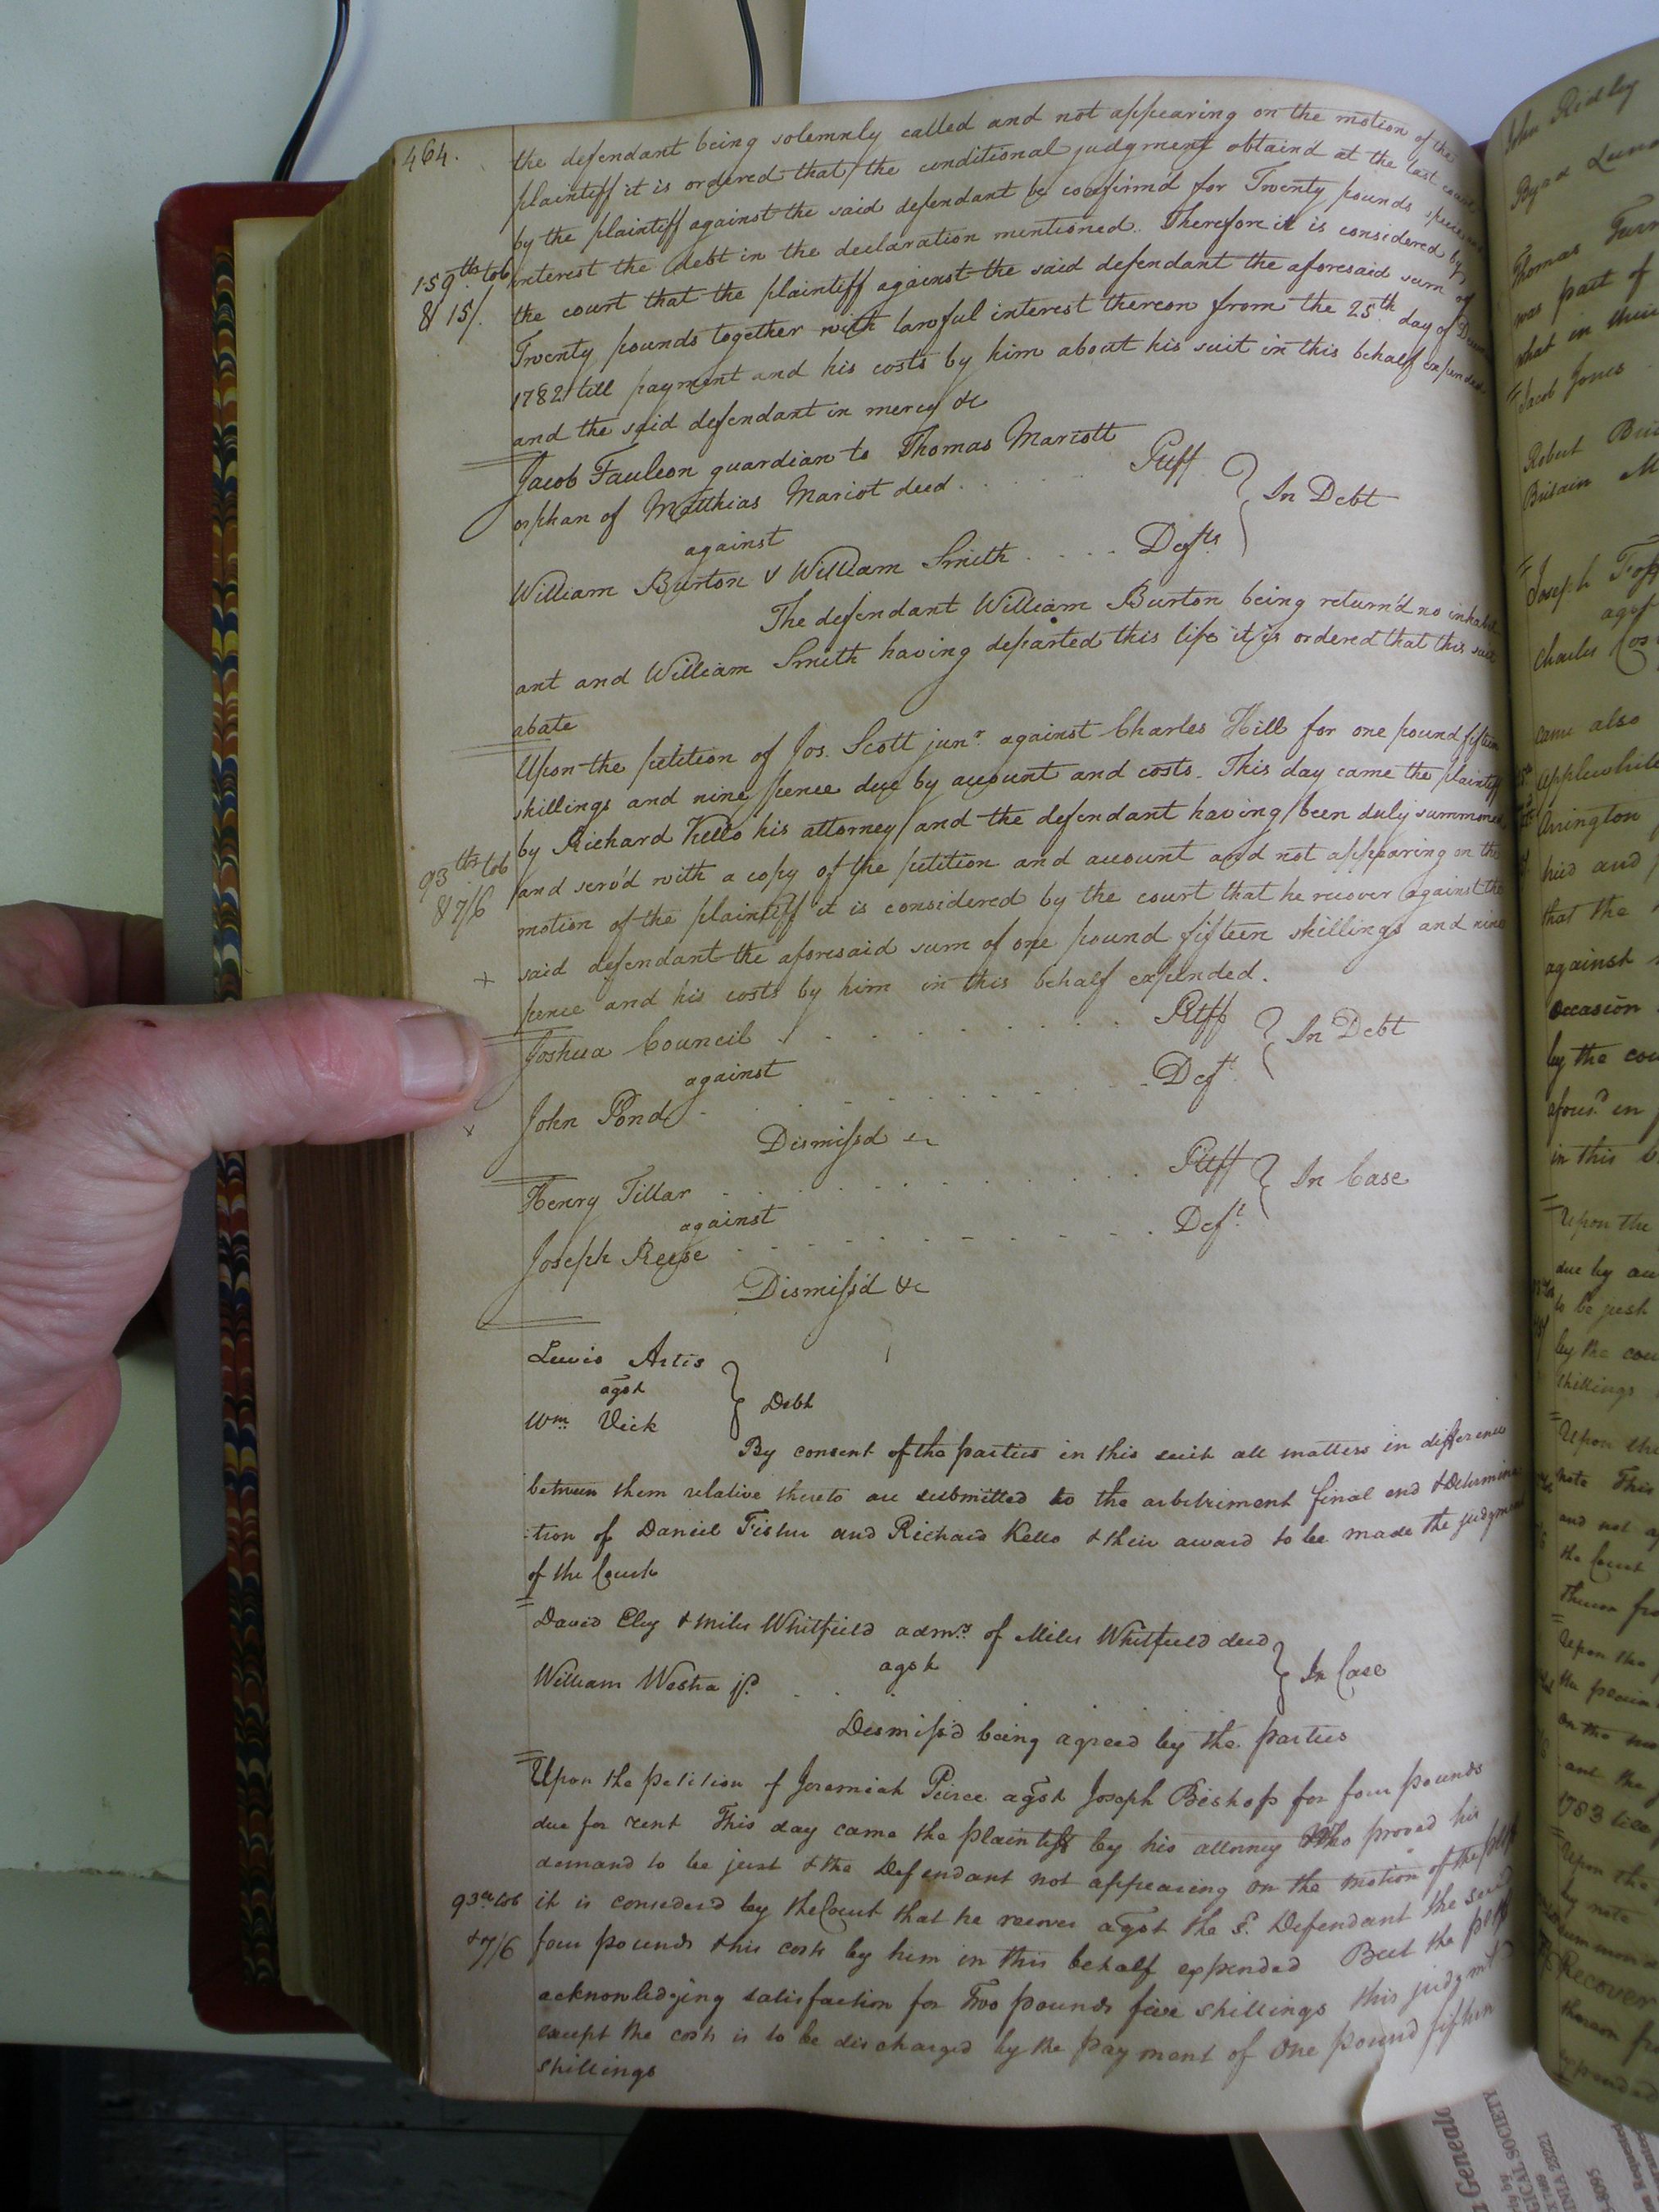 464.
the defendant being solemnly called and not appearing on the motion of the
plaintiff it is ordered that the conditional judgment obtaind at the last court
by the plaintiff against the said defendant be confirm'd for Twenty pounds specie and
interest the debt in the declaration mentioned. Therefore it is considered by
159 tts tob
& 15/.
the court that the plaintiff against the said defendant the aforesaid sum of
Twenty pounds together with lawful interest thereon from the 25th day of Decem
1782 till payment and his costs by him about his suit in this behalf expended
and the said defendant in mercy &c
Jacob Faulcon guardian to Thomas Mariott
orphan of Matthias Mariot deced . . . . Pltff
against
In Debt
William Burton & William Smith . . . . Defts
The defendant William Burton being return'd no inhabit
ant and William Smith having departed this life it is ordered that this suit
abate
Upon the petition of Jos. Scott junr. against Charles Hill for one pound fifteen
shillings and nine pence due by account and costs. This day came the plaintiff
by Richard Kello his attorney and the defendant having been duly summoned
93 tts tob
& 7/6
and serv'd with a copy of the petition and account and not appearing on the
motion of the plaintiff it is considered by the court that he recover against the
+ said defendant the aforesaid sum of one pound fifteen shillings and nine
pence and his costs by him in this behalf expended.
Joshua Council . . . . . . . . Pltff
against
In Debt
x
John Pond . . . . . . . . Deft.
Dismiss'd &c
Henry Tillar . . . . . . . . Pltff
against
In Case
Joseph Reese . . . . . . . . Deft.
Dismiss'd &c
Lewis Artis
agst
Debt
Wm. Vick
By consent of the parties in this suit all matters in difference
between them relative thereto are submitted to the arbitriment final end & determina
:tion of Daniel Fisher and Richard Kello & their award to be made the judgment
of the Court
David Eley & Miles Whitfield admrs. of Miles Whitfield deced
agst
In Case
William Westra jr. . .
Dismiss'd being agreed by the parties
Upon the petition of Jeremiah Peirce agst Joseph Bishop for four pounds
due for rent This day came the plaintiff by his attorney Who proved his
demand to be just & the Defendant not appearing on the motion of the pltff
93 tts tob
& 7/6
it is considerd by the Court that he recover agst the sd. Defendant the said
four pounds & his costs by him in this behalf expended But the pltff
acknowledging satisfaction for Two pounds five shillings this judgmt
except the costs is to be discharged by the payment of One pound fifteen
shillings
John Ridley
Thomas
was part of
what in their
Jacob Jones
Robert
Joseph
agst
Charles
came also
Applewhite
Arrington
that the
against
occasion
by the cou
in this b
Upon the
due by
to be just
by the cou
shillings
Upon the
note This
and not
the Court
Upon the
the plain
on the mo
ant the
1783 till
Upon the
by note
Recover
thereon fr
expended
Geneal
ICAL SOCIETY
NIA 23221
8095